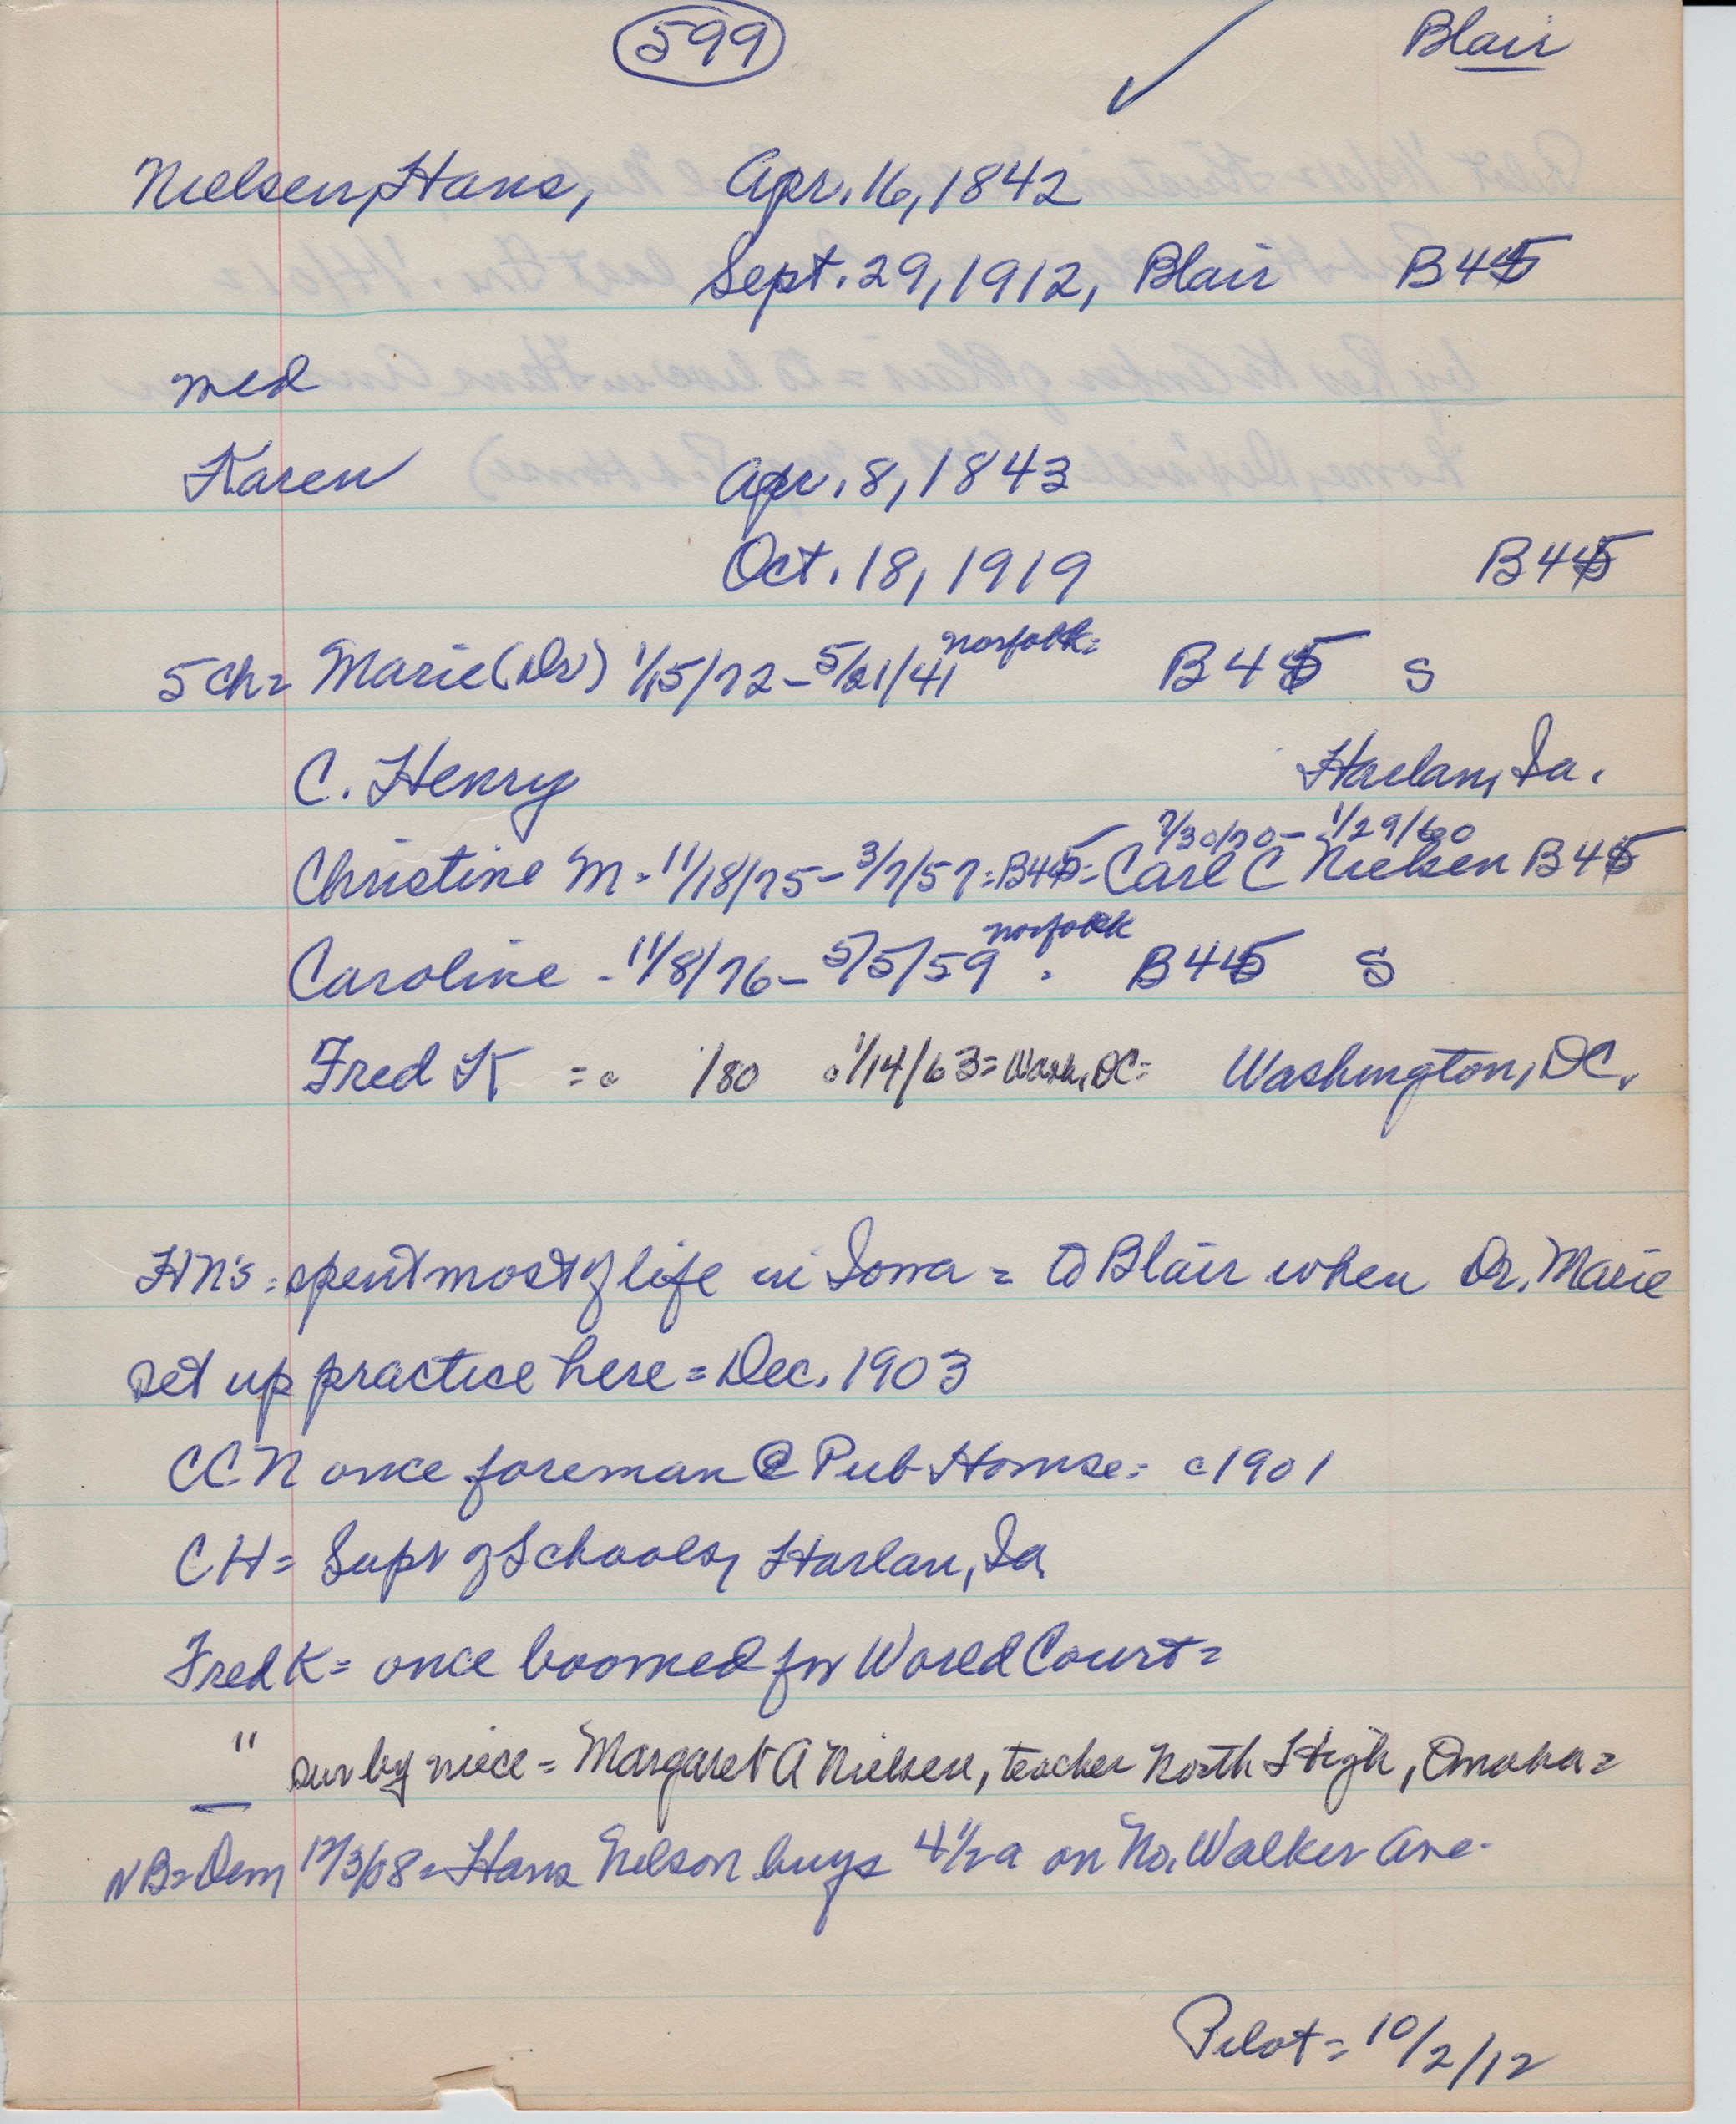 599 Blair
Nielsen, Hans, Apr. 16, 1842
Sept. 29, 1912, Blair B45
med
Karen Apr. 8, 1843
Oct. 18, 1919 B45
5 ch= Marie (Dr) 1/15/72 - 5/21/41 Norfolk= B45 S
C. Henry Harlan, Ia.
7/30/70 - 1/29/60
Christine M - 11/18/75 - 3/7/57 = B45 = Carl C Nielsen B45
Caroline - 11/8/76 - 5/5/59 Norfolk = B45 S
Fred K = c /80 c 1/14/63 = Wash, DC = Washington, DC.
HN's = spent most of life in Iowa = to Blair when Dr. Marie
set up practice here = Dec. 1903
CCN once foreman @ Pub House = c1901
CH = Supt of Schools, Harlan, Ia
Fred K = once boomed for World Court =
" sur by niece = Margaret A Nielsen, teacher North High, Omaha =
NB = Dem 12/3/08 = Hans Nelson buys 4 1/2 a on No. Walker Ave.
Pilot = 10/2/12